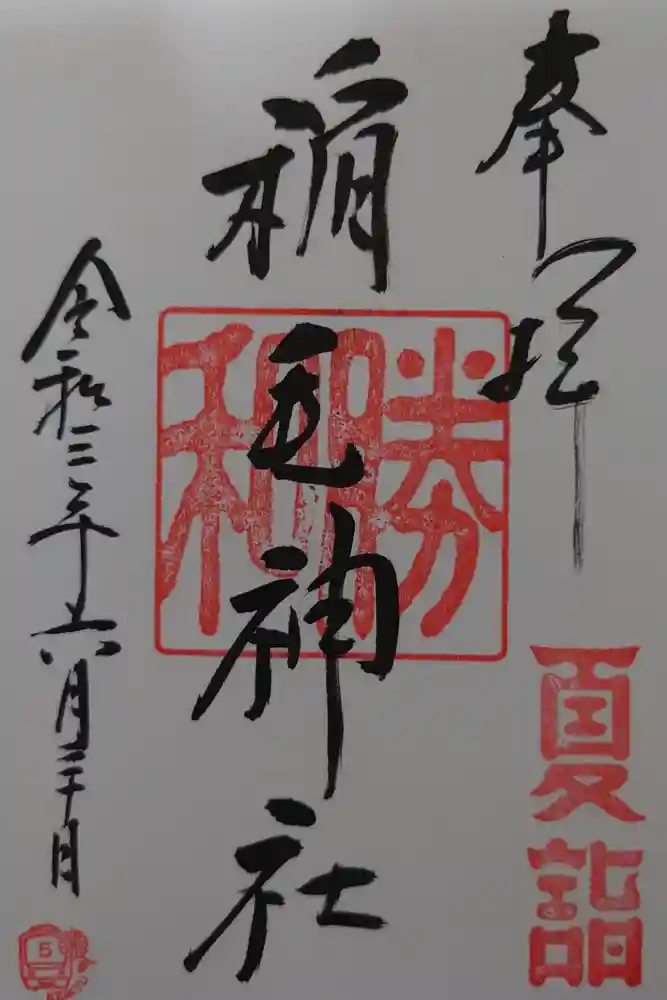 奉拝
夏詣
稲毛神社
勝和
令和三年六月二十日
5